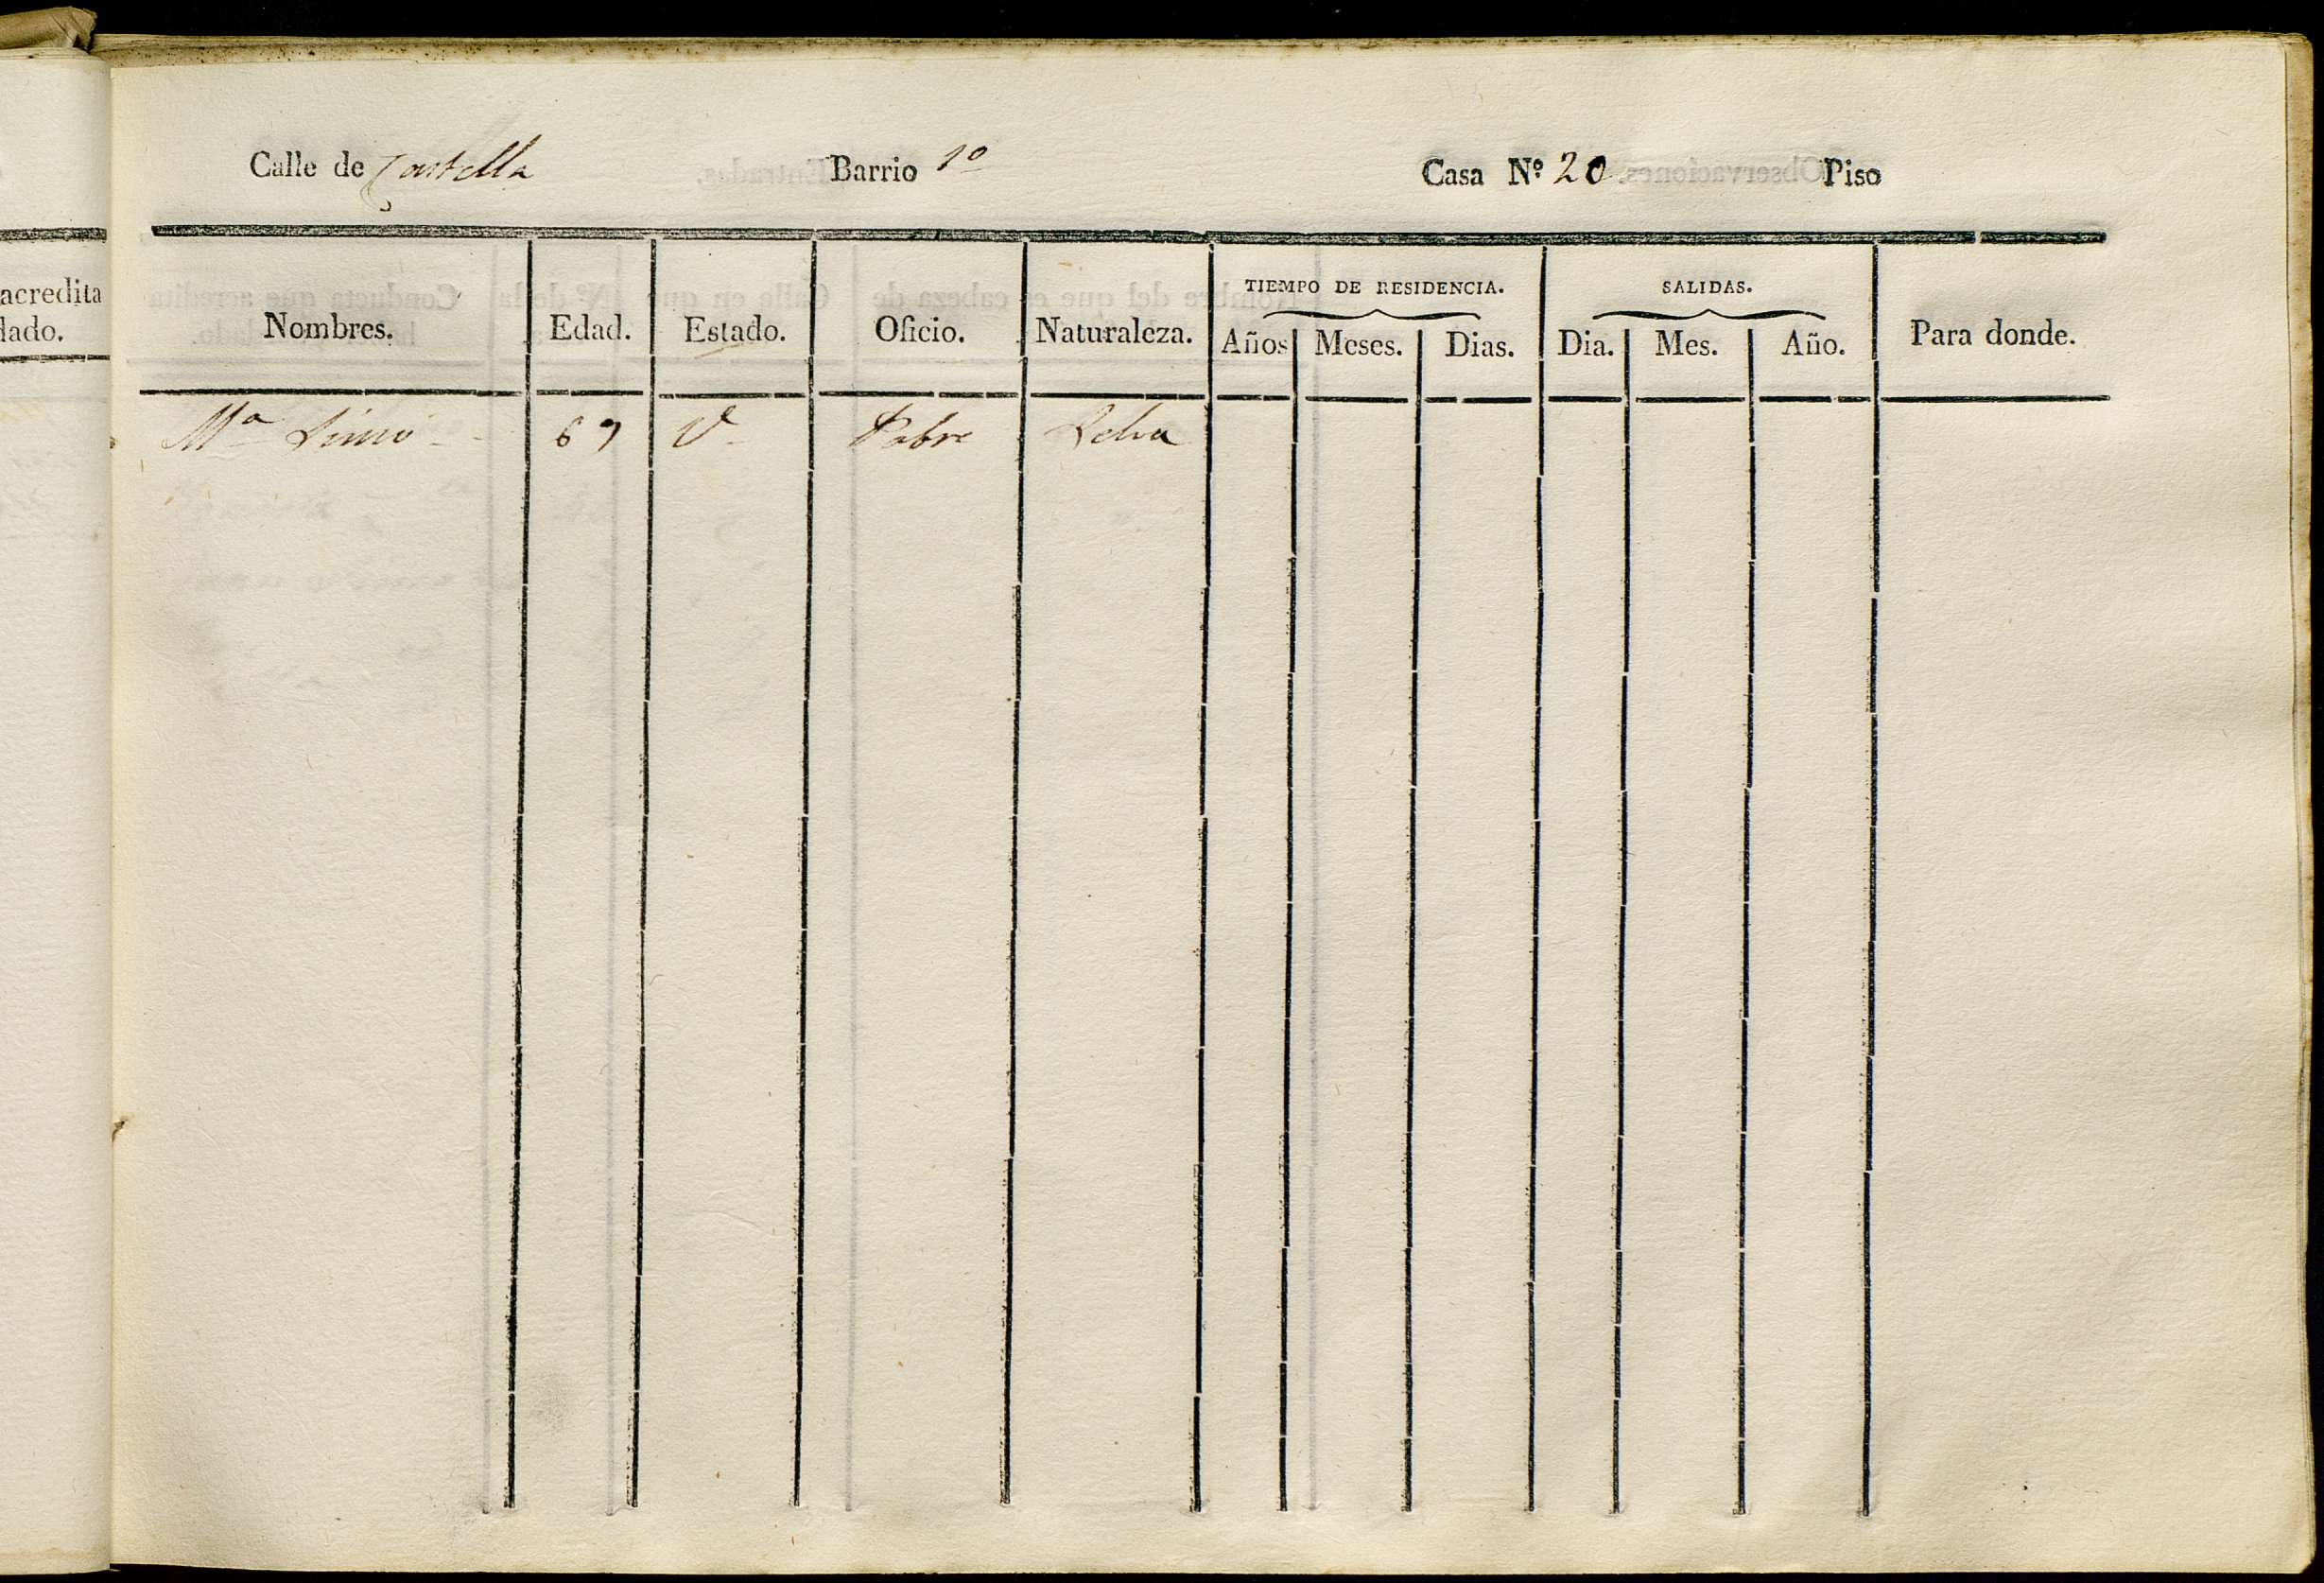 acredita
lado.
Calle de Castella Barrio 1º Casa Nº 20 Piso
TIEMPO DE RESIDENCIA. SALIDAS.
Nombres. Edad. Estado. Oficio. Naturaleza. Años Meses. Dias. Dia. Mes. Año. Para donde.
Mª Simó 67 V. Pobre Selva